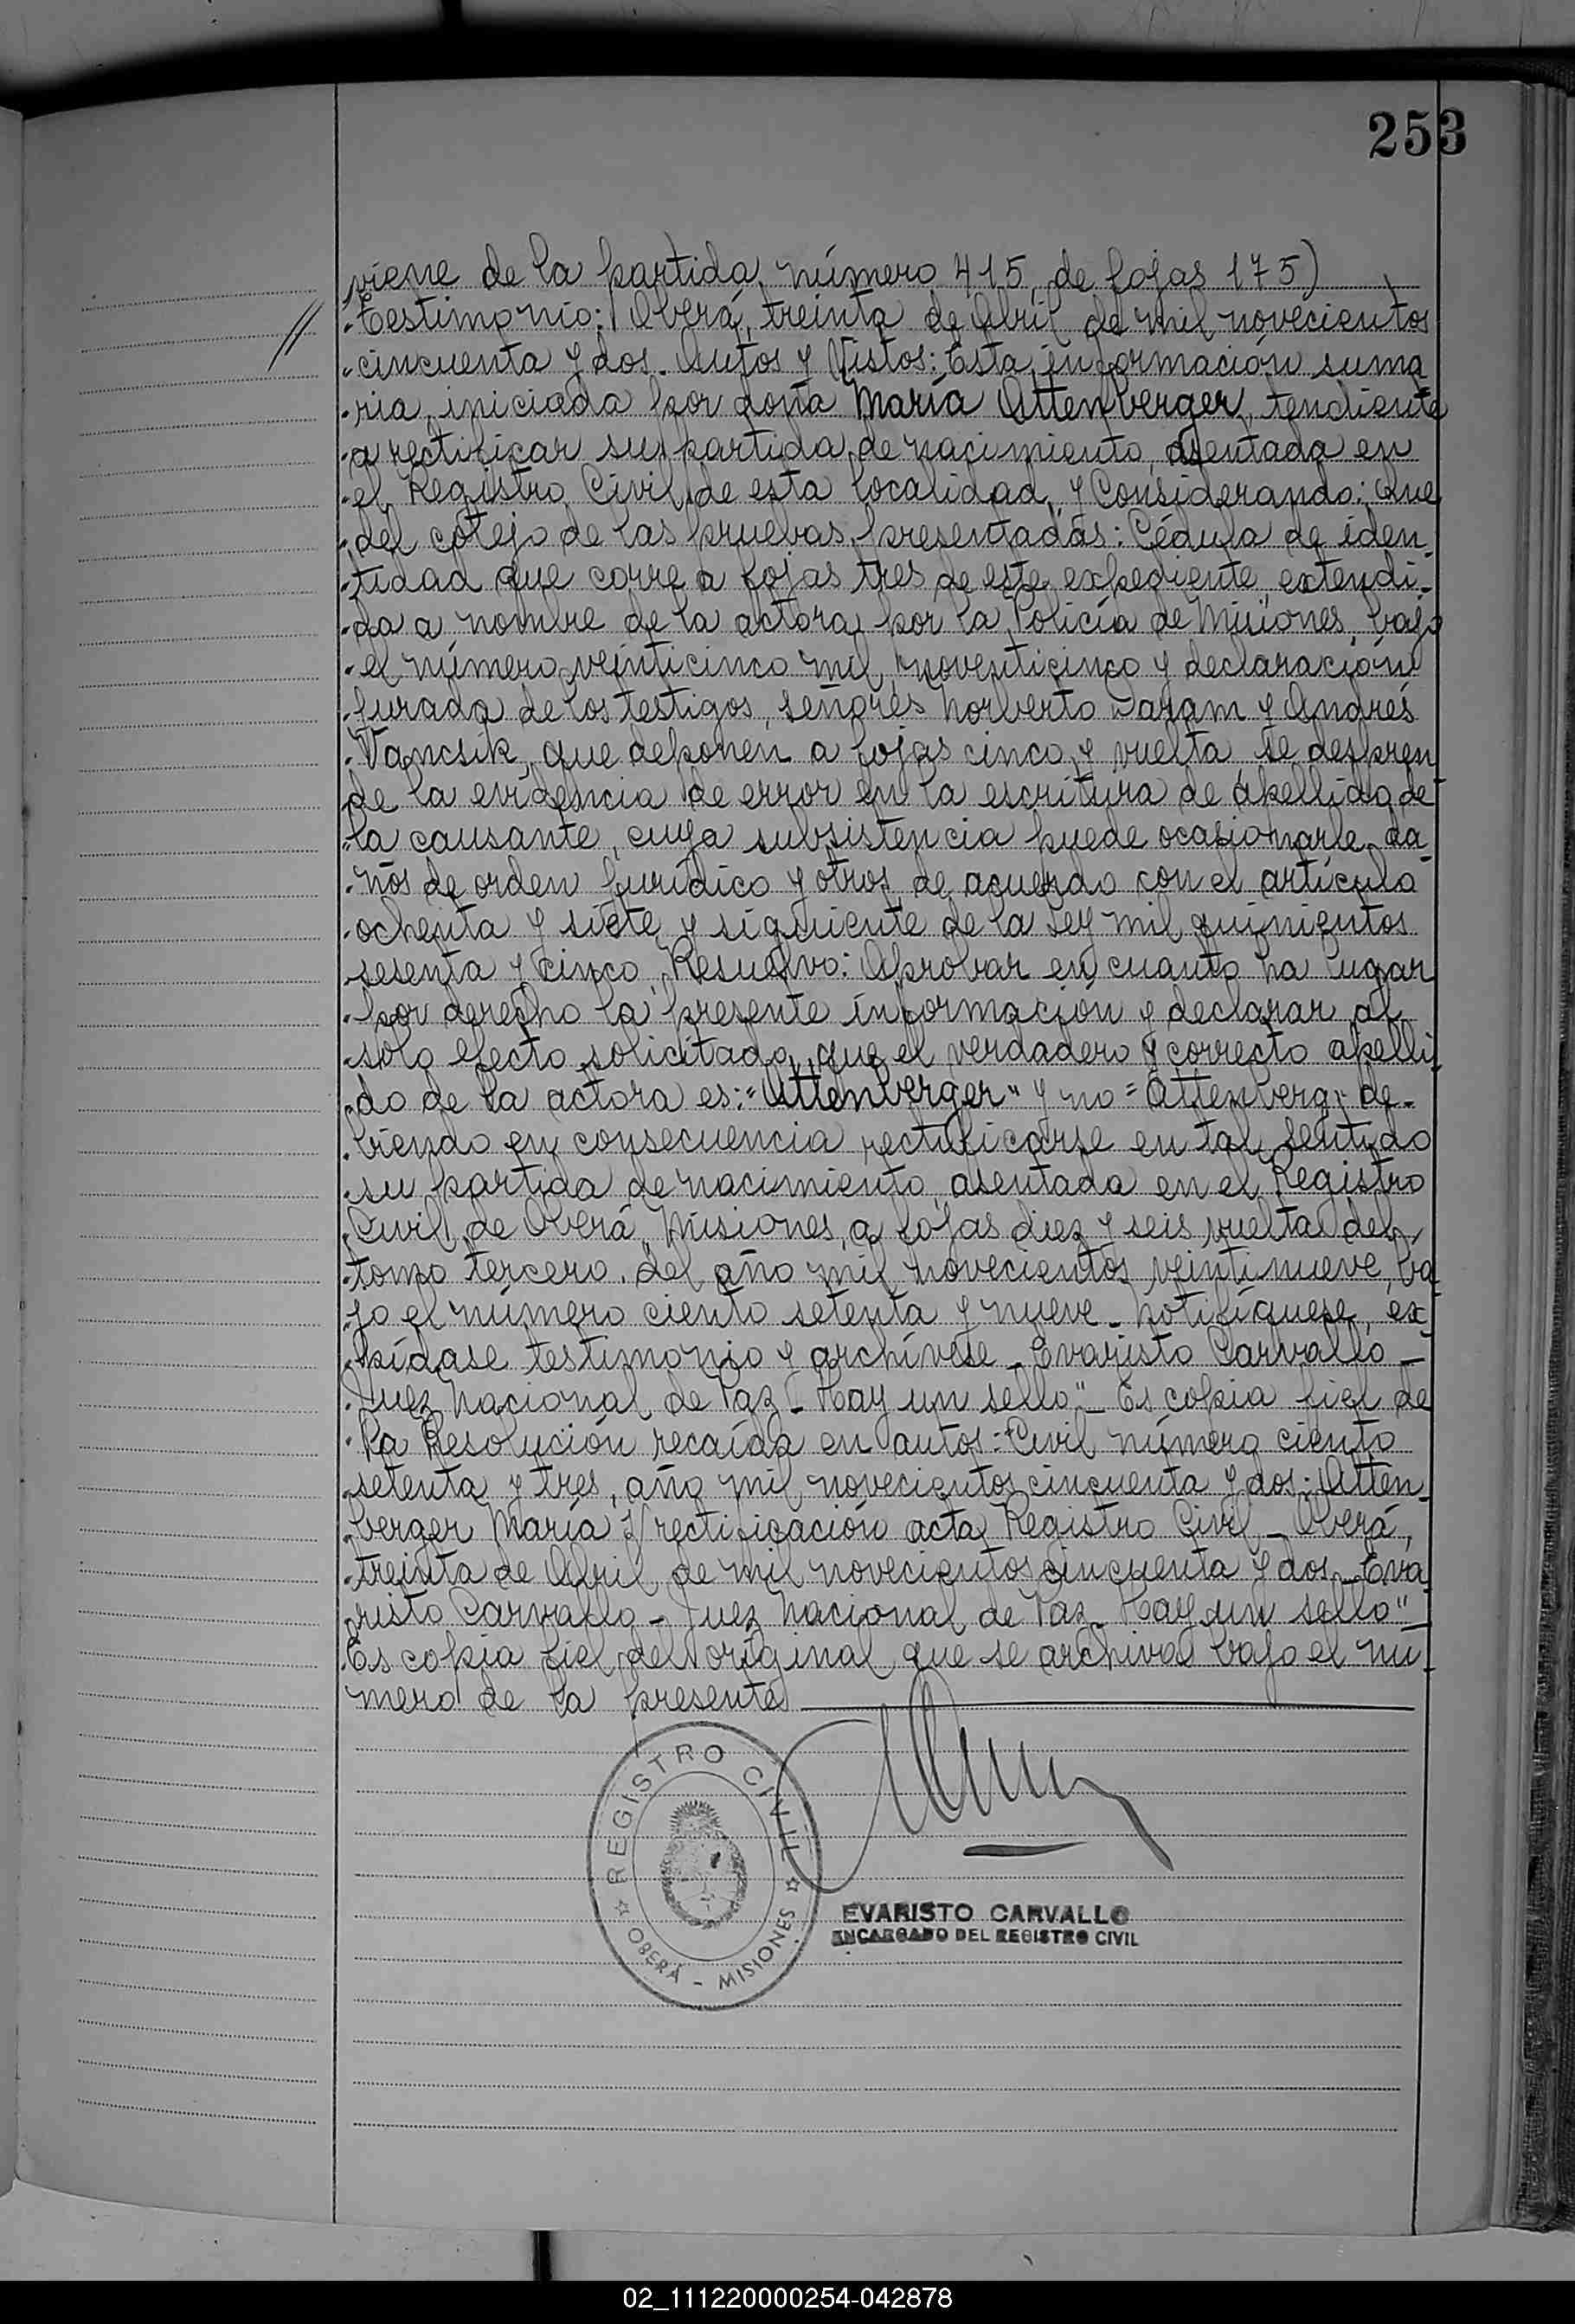 253
viene de la partida número 415, de fojas 175)
Testimonio: Oberá, treinta de Abril de mil novecientos
cincuenta y dos. Autos y Vistos: Esta información suma
ria, iniciada por doña María Attenberger, tendiente
a rectificar su partida de nacimiento, asentada en
el Registro Civil de esta localidad, y Considerando: Que
del cotejo de las pruebas presentadas: Cédula de iden-
tidad que corre a fojas tres de este expediente, extendi-
da a nombre de la actora por la Policía de Misiones, bajo
el número veinticinco mil noventicinco y declaración
jurada de los testigos, señores Norberto y Andrés
Vancsik, que deponen a fojas cinco y vuelta se despren-
de la evidencia de error en la escritura de apellido de
la causante, cuya subsistencia puede ocasionarle da-
ños de orden jurídico y otros, de acuerdo con el artículo
ochenta y siete y siguiente de la Ley mil quinientos
sesenta y cinco, Resuelvo: Aprobar en cuanto ha lugar
por derecho la presente información y declarar al
solo efecto solicitado, que el verdadero y correcto apelli-
do de la actora es: "Attenberger" y no "Attenberg" de-
biendo en consecuencia rectificarse en tal sentido
su partida de nacimiento, asentada en el Registro
Civil de Oberá, Misiones, a fojas diez y seis vuelta del
tomo tercero, del año mil novecientos veintinueve, ba-
jo el número ciento setenta y nueve. Notifíquese, ex-
pídase testimonio y archívese - Evaristo Carvallo -
Juez Nacional de Paz - Hay un sello" - Es copia fiel de
la Resolución recaída en autos: "Civil número ciento
setenta y tres, año mil novecientos cincuenta y dos: Atten-
berger María S/ rectificación acta Registro Civil - Oberá,
treinta de Abril de mil novecientos cincuenta y dos - Eva
risto Carvallo - Juez Nacional de Paz - Hay un sello"
Es copia fiel del original que se archiva bajo el nú-
mero de la presente
REGISTRO CIVIL
OBERÁ - MISIONES
EVARISTO CARVALLO
ENCARGADO DEL REGISTRO CIVIL
02_111220000254-042878